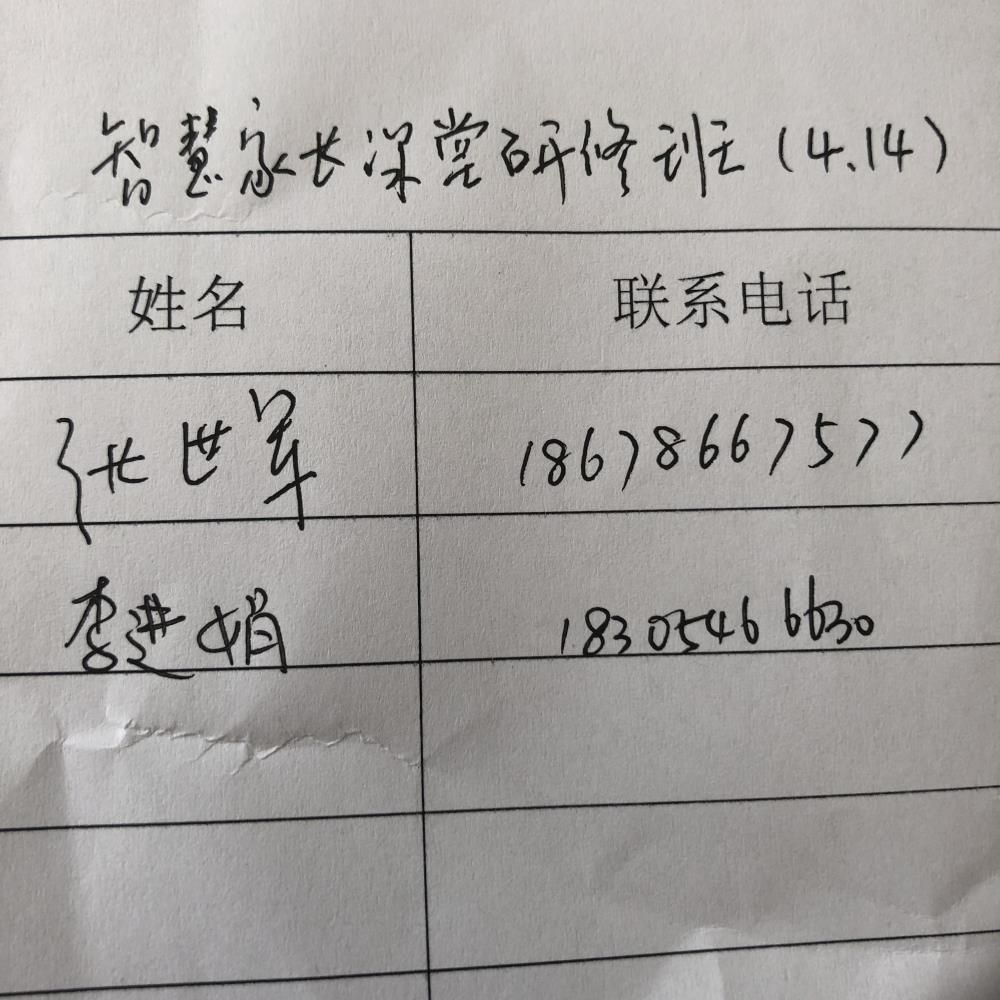 智慧家长课堂研修班(4.14)
姓名 联系电话
张世军 18678667577
李进娟 18305466630